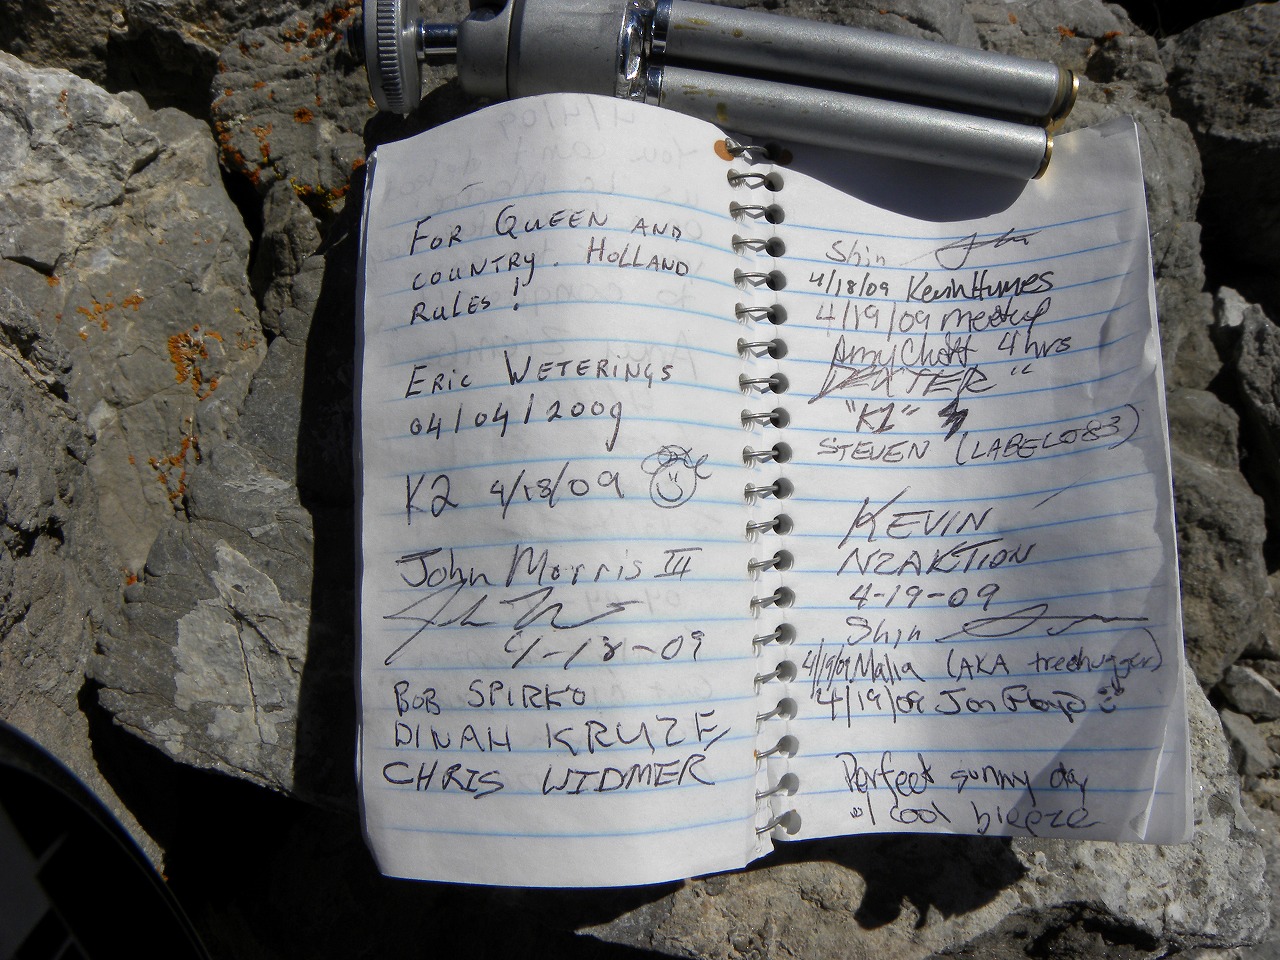 FOR QUEEN AND
COUNTRY. HOLLAND
RULES!
ERIC WETERINGS
04/04/2009
K2 4/18/09
John Morris III
4-18-09
BOB SPIRKO
DINAH KRUZE
CHRIS WIDMER
Shin
4/18/09 Kevin Humes
4/19/09 meetup
Amy 4 hrs
DEXTER"
"K1"
STEVEN (LABEL083)
KEVIN
N2AKTION
4-19-09
Shin
4/19/09 Malia (AKA treehugger)
4/19/09 Jon Floyd
Perfect sunny day
w/ cool breeze